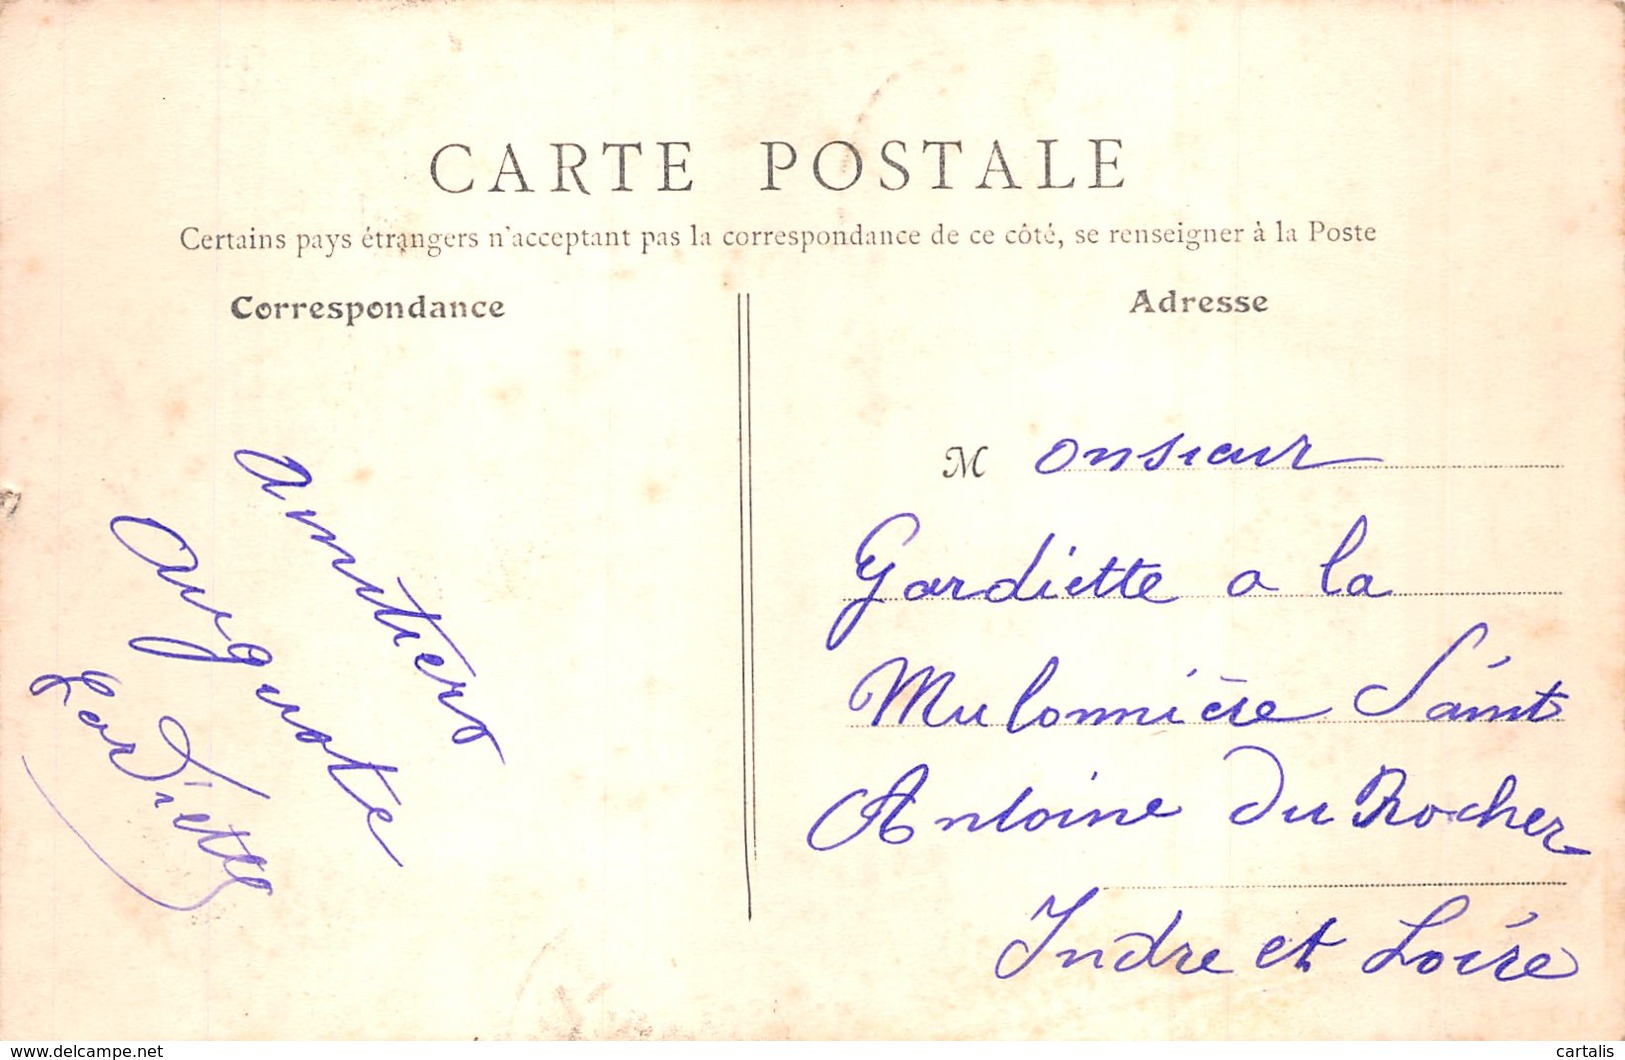 CARTE POSTALE
Certains pays étrangers n'acceptant pas la correspondance de ce côté, se renseigner à la Poste
Correspondance
amitiers
Auguste
Gardiette
Adresse
Monsieur
Gardiette a la
Mulonnière Saint
Antoine Du Rocher
Indre et Loire
www.delcampe.net
cartalis